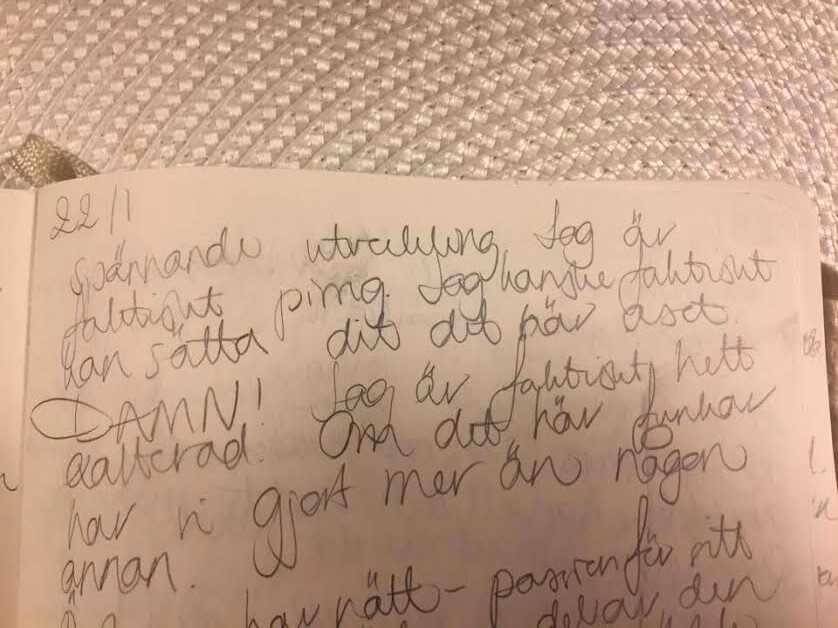 22/1
spännande utveckling Jag är
faktiskt pirrig. Jag kanske faktiskt
kan sätta dit det här aset.
DAMN! Jag är faktiskt helt
exalterad! Om det här funkar
har vi gjort mer än någon
annan.
har rätt - passion för sitt
delar den